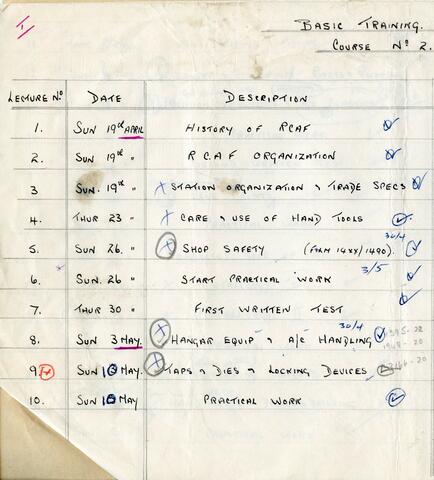 I
BASIC TRAINING.
COURSE Nº 2.
LECTURE Nº DATE DESCRIPTION
1. SUN 19th APRIL HISTORY OF RCAF
2. SUN 19th " R C A F ORGANIZATION
3 SUN. 19th " X STATION ORGANIZATION & TRADE SPECS
4. THUR 23 " X CARE & USE OF HAND TOOLS
30/4
5. SUN 26. " X SHOP SAFETY (FORM 14XX/1480).
3/5
6. SUN. 26 " START PRACTICAL WORK
7. THUR 30 " FIRST WRITTEN TEST
30/4
8. SUN 3 MAY. X HANGAR EQUIP & A/C HANDLING
9. SUN 10 MAY. X TAPS & DIES & LOCKING DEVICES
10. SUN 10 MAY PRACTICAL WORK